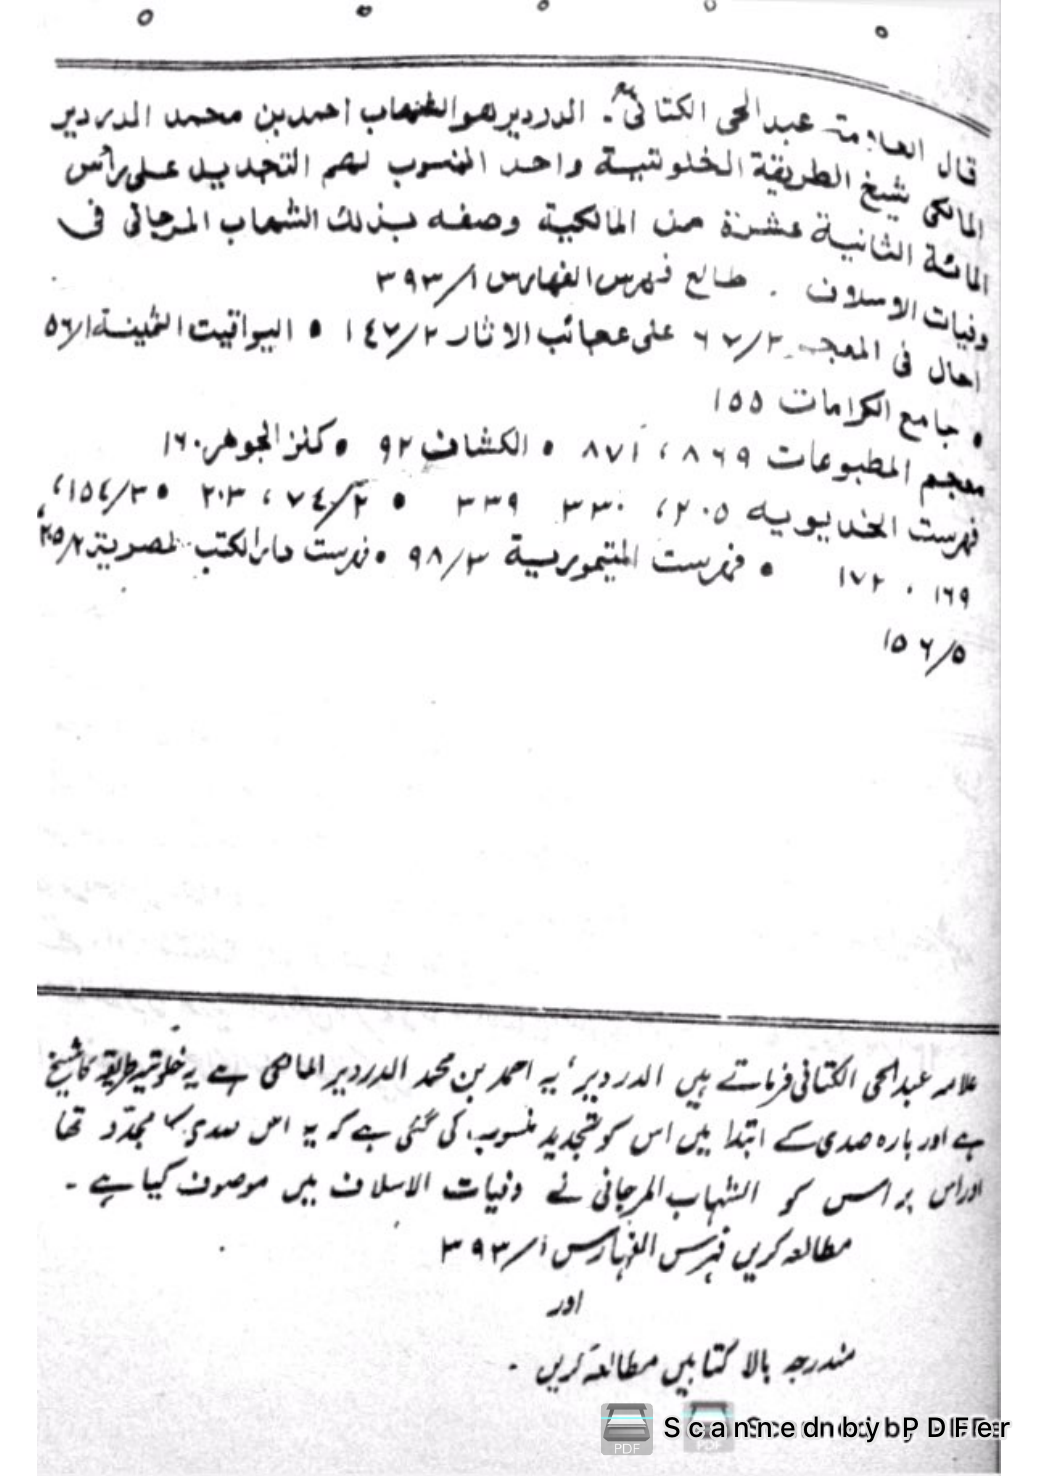 قال العلامة عبدالحی الکتانی: الدردیر هو الشهاب احمد بن محمد الدردیر
المالکی شیخ الطریقة الخلوتیة واحد المنسوب لهم التجدید علی رأس
المائة الثانیة عشرة من المالکیة وصفه بذلك الشهاب المرجانی فی
وفیات الاسلاف . طالع فهرس الفهارس ۱/۳۹۳
احال فی المعجم ۲/۶۷ علی عجائب الاثار ۲/۱۴۷ • الیواقیت الثمینة ۱/۵۶
• جامع الکرامات ۱۵۵
معجم المطبوعات ۸۶۹ ، ۸۷۱ • الکشاف ۹۲ • کنز الجوهر ۱۶۰
فهرست الخدیویه ۲۰۵، ۳۳۰ ۳۳۹ • ۲/۷۴ ، ۲۰۳ • ۳/۱۵۴،
۱۶۹ ، ۱۷۲ • فهرست التیموریة ۳/۹۸ • فهرست دار الکتب المصریة ۲/۲۰۵،
۵/۱۵۶
علامہ عبدالحی الکتانی فرماتے ہیں الدردیر، یہ احمد بن محمد الدردیر المالکی ہے یہ خلوتیہ طریقہ کا شیخ
ہے اور بارہ صدی کے ابتدا میں اس کو تجدید منسوب کی گئی ہے کہ یہ اس صدی کا مجدّد تھا
اور اس پر اسس کو الشہاب المرجانی نے وفیات الاسلاف میں موصوف کیا ہے ۔
مطالعہ کریں فہرس الفہارس ۱/۳۹۳
اور
مندرجہ بالا کتابیں مطالعہ کریں ۔
PDF